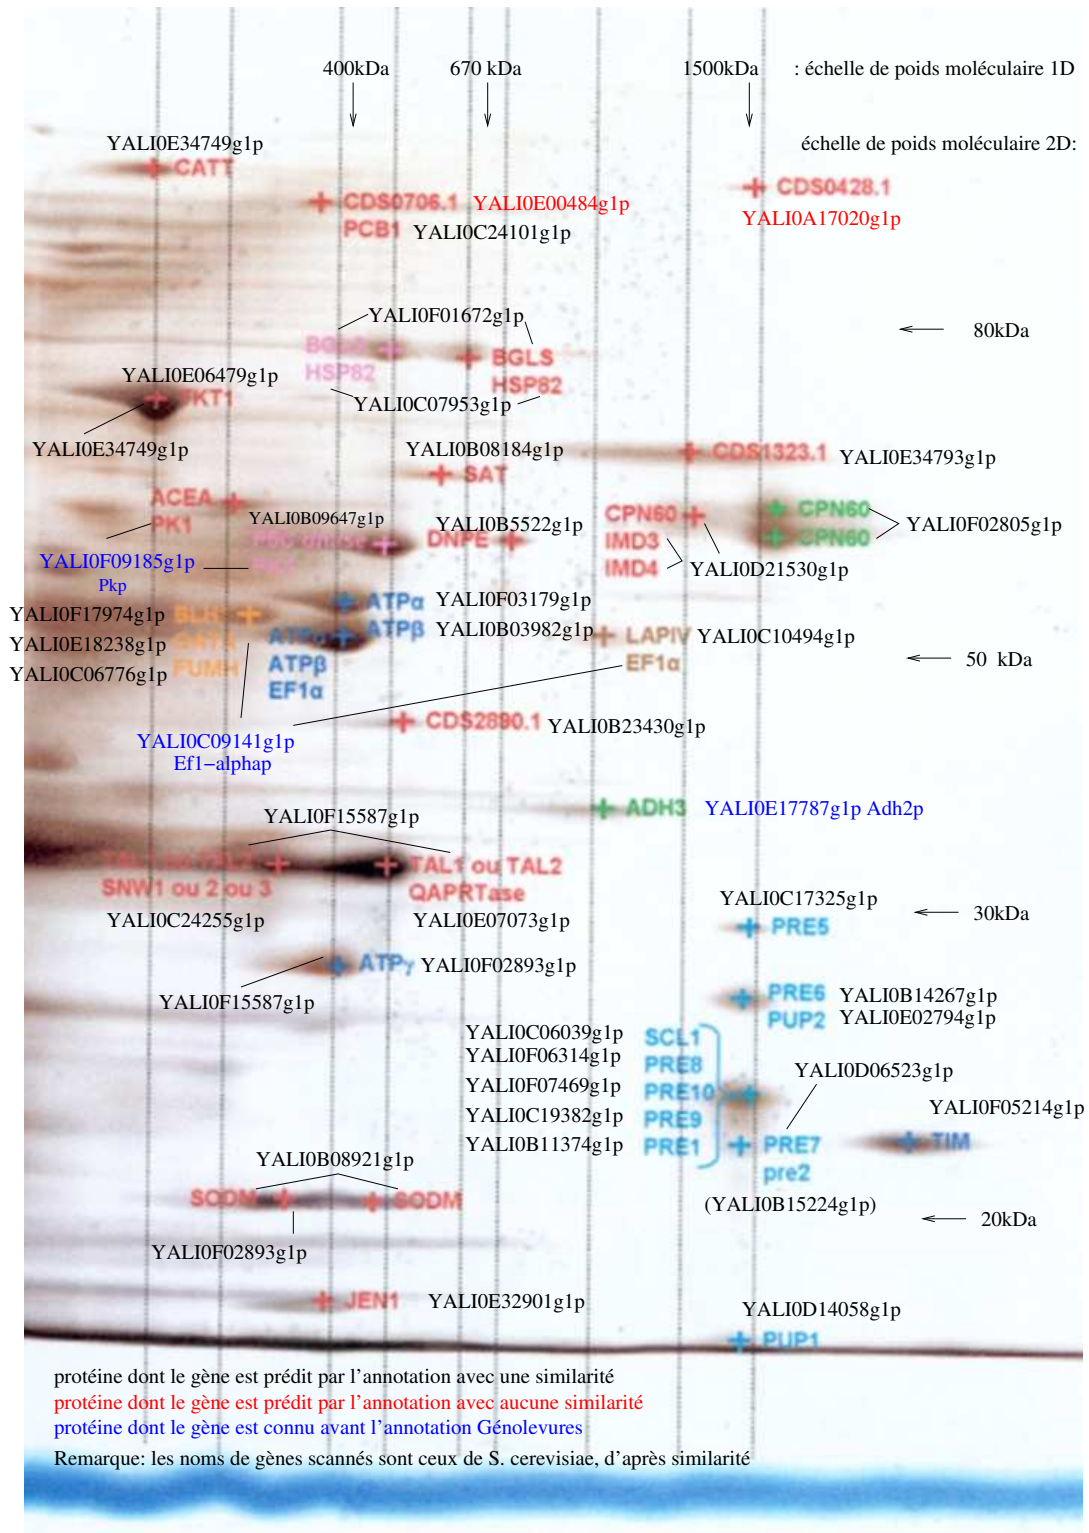 400kDa 670 kDa 1500kDa : échelle de poids moléculaire 1D
échelle de poids moléculaire 2D:
YALI0E34749g1p
CATT
CDS0706.1 YALI0E00484g1p
PCB1 YALI0C24101g1p
CDS0428.1
YALI0A17020g1p
YALI0F01672g1p
80kDa
BGLS
HSP82
BGLS
HSP82
YALI0C07953g1p
YALI0E06479g1p
TKT1
YALI0E34749g1p
YALI0B08184g1p
SAT
CDS1323.1 YALI0E34793g1p
ACEA
PK1
YALI0B09647g1p
YALI0B5522g1p
DNPE
CPN60
IMD3
IMD4
YALI0D21530g1p
CPN60
CPN60
YALI0F02805g1p
YALI0F09185g1p
Pkp
ATPα YALI0F03179g1p
ATPβ YALI0B03982g1p
YALI0F17974g1p
YALI0E18238g1p
YALI0C06776g1p FUMH
ATPα
ATPβ
EF1α
LAPIV YALI0C10494g1p
EF1α
50 kDa
CDS2890.1 YALI0B23430g1p
YALI0C09141g1p
Ef1-alphap
ADH3 YALI0E17787g1p Adh2p
YALI0F15587g1p
TAL1 ou TAL2
SNW1 ou 2 ou 3
TAL1 ou TAL2
QAPRTase
YALI0C24255g1p
YALI0E07073g1p
YALI0C17325g1p
PRE5
30kDa
ATPγ YALI0F02893g1p
YALI0F15587g1p
PRE6 YALI0B14267g1p
PUP2 YALI0E02794g1p
YALI0C06039g1p SCL1
YALI0F06314g1p PRE8
YALI0F07469g1p PRE10
YALI0C19382g1p PRE9
YALI0B11374g1p PRE1
YALI0D06523g1p
PRE7
pre2
(YALI0B15224g1p)
YALI0F05214g1p
TIM
YALI0B08921g1p
SODM SODM
20kDa
YALI0F02893g1p
JEN1 YALI0E32901g1p
YALI0D14058g1p
PUP1
protéine dont le gène est prédit par l'annotation avec une similarité
protéine dont le gène est prédit par l'annotation avec aucune similarité
protéine dont le gène est connu avant l'annotation Génolevures
Remarque: les noms de gènes scannés sont ceux de S. cerevisiae, d'après similarité